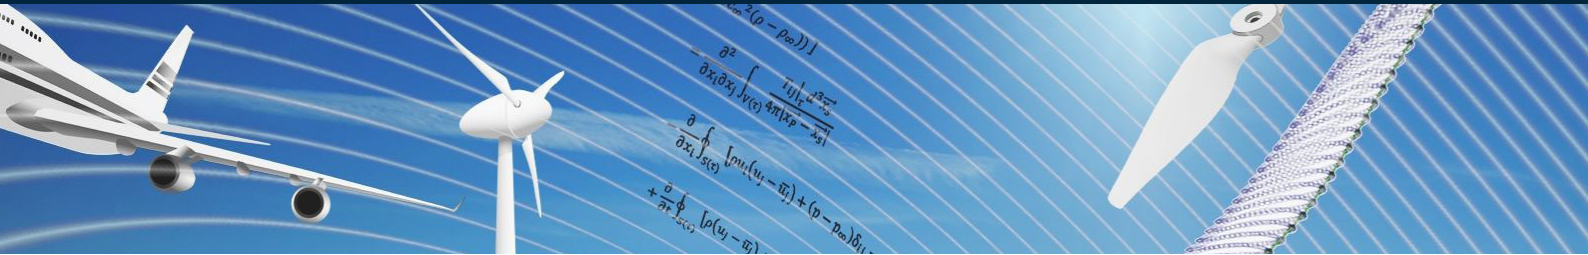 c∞²(ρ − ρ∞))]
− ∂²/∂xᵢ∂xⱼ ∫V(τ) Tᵢⱼ|τ / 4π|x⃗p − x⃗s| d³x⃗s
− ∂/∂xᵢ ∮S(τ) [ρuᵢ(uⱼ − ūⱼ) + (p − p∞)δᵢⱼ
+ ∂/∂t ∮S(τ) [ρ(uⱼ − ūⱼ)